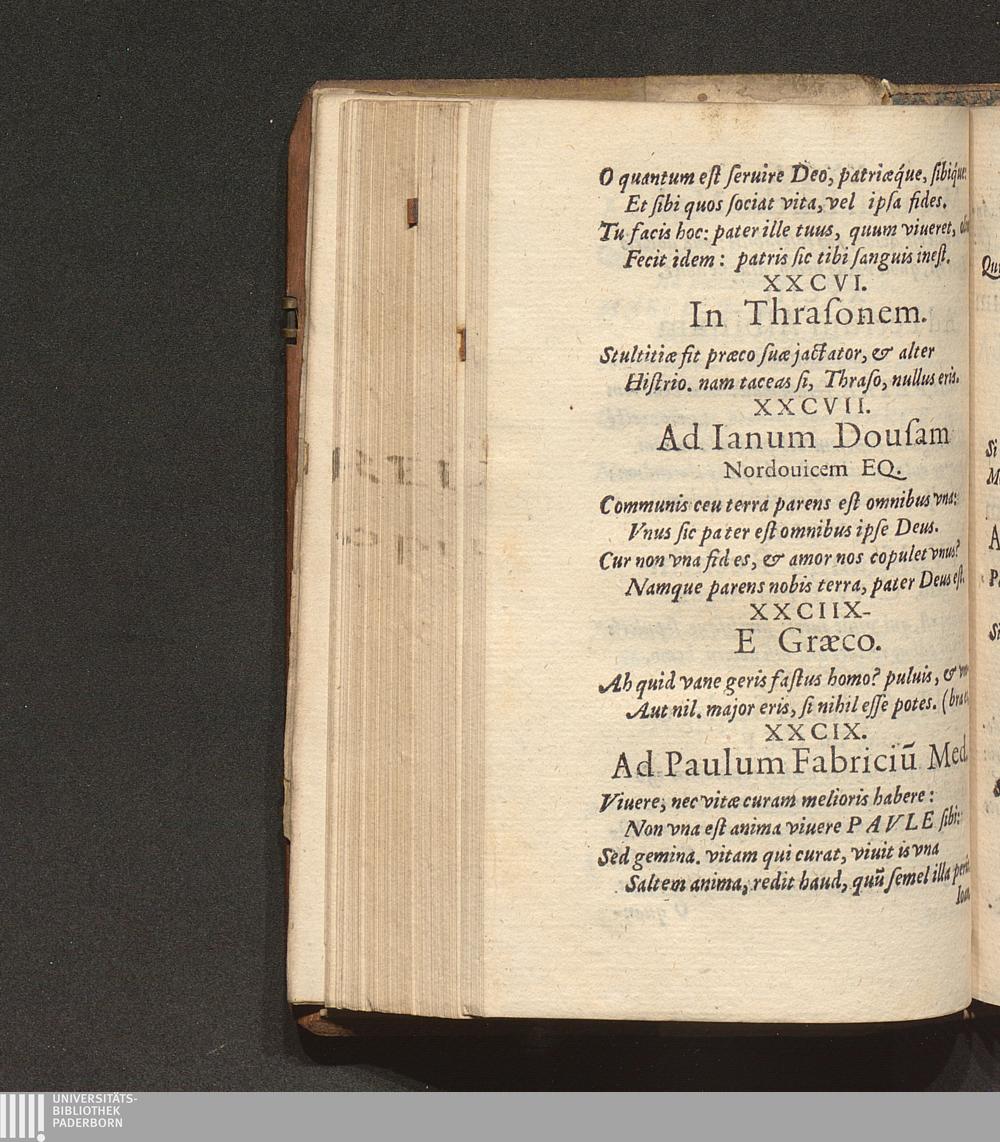 O quantum eſt ſeruire Deo, patriæq́ue, ſibiq́ue:
Et ſibi quos ſociat vita, vel ipſa fides.
Tu facis hoc: pater ille tuus, quum viueret,
Fecit idem: patris ſic tibi ſanguis ineſt.
XXCVI.
In Thraſonem.
Stultitiæ fit præco ſuæ jactator, & alter
Hiſtrio. nam taceas ſi, Thraſo, nullus eris.
XXCVII.
Ad Ianum Douſam
Nordouicem EQ.
Communis ceu terra parens eſt omnibus vna:
Vnus ſic pater eſt omnibus ipſe Deus.
Cur non vna fides, & amor nos copulet vnus?
Namque parens nobis terra, pater Deus eſt.
XXCIIX-
E Græco.
Ah quid vane geris faſtus homo? puluis, &
Aut nil. major eris, ſi nihil eſſe potes. (bra
XXCIX.
Ad Paulum Fabriciū Med.
Viuere, nec vitæ curam melioris habere:
Non vna eſt anima viuere PAVLE ſibi:
Sed gemina. vitam qui curat, viuit is vna
Saltem anima, redit haud, quū ſemel illa
Qui
Si
UNIVERSITÄTS-
BIBLIOTHEK
PADERBORN